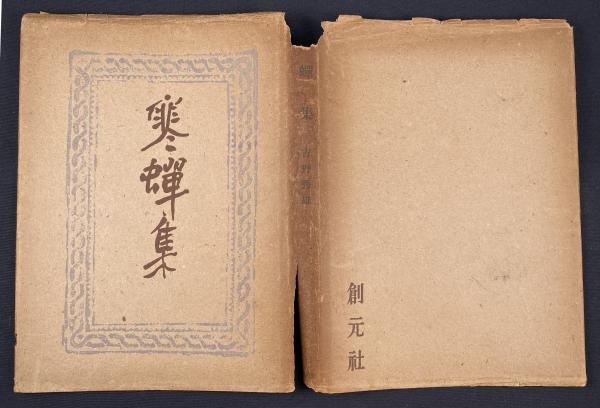 寒蟬集
蟬集 吉野秀雄
創元社